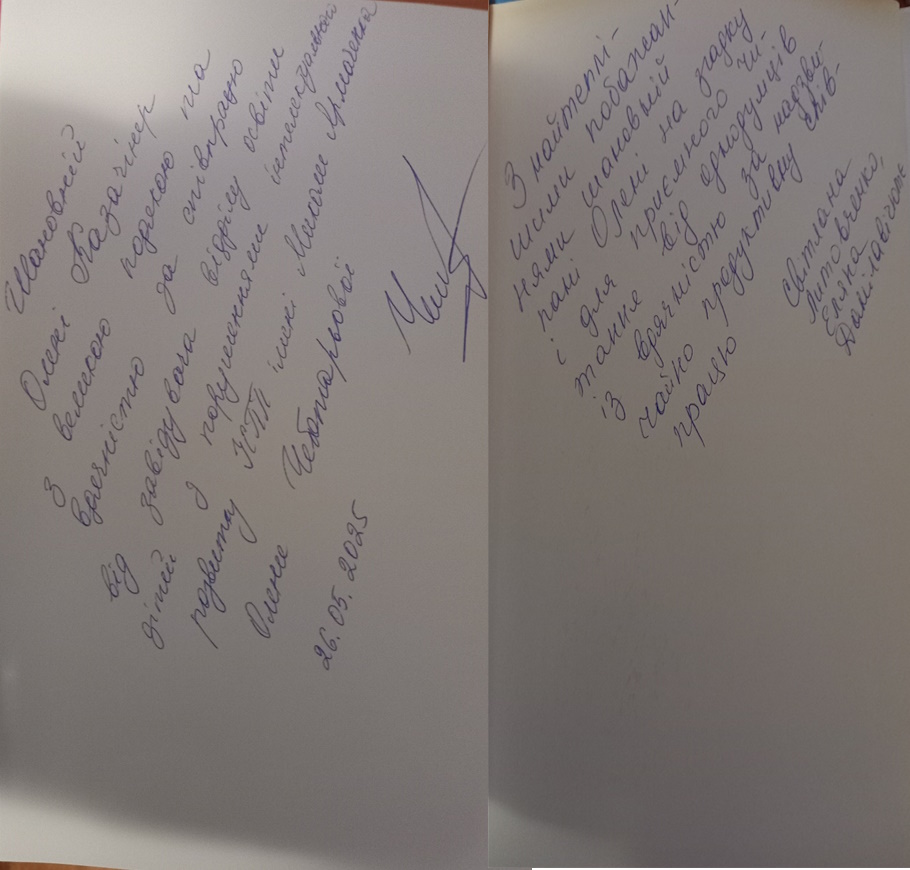 Шановній
Олені Казачінер
з великою повагою та
вдячністю за співпрацю
від завідувача відділу освіти
дітей з порушеннями інтелектуального
розвитку ІСПП імені Миколи Ярмаченка
Олени Чеботарьової
26.05.2025
З найтеплі-
шими побажан-
нями шановній
пані Олені на згадку
і для приємного чи-
тання від однодумців
із вдячністю за надзви-
чайно продуктивну спів-
працю
Світлана
Литовченко,
Еляна
Данілавічютє